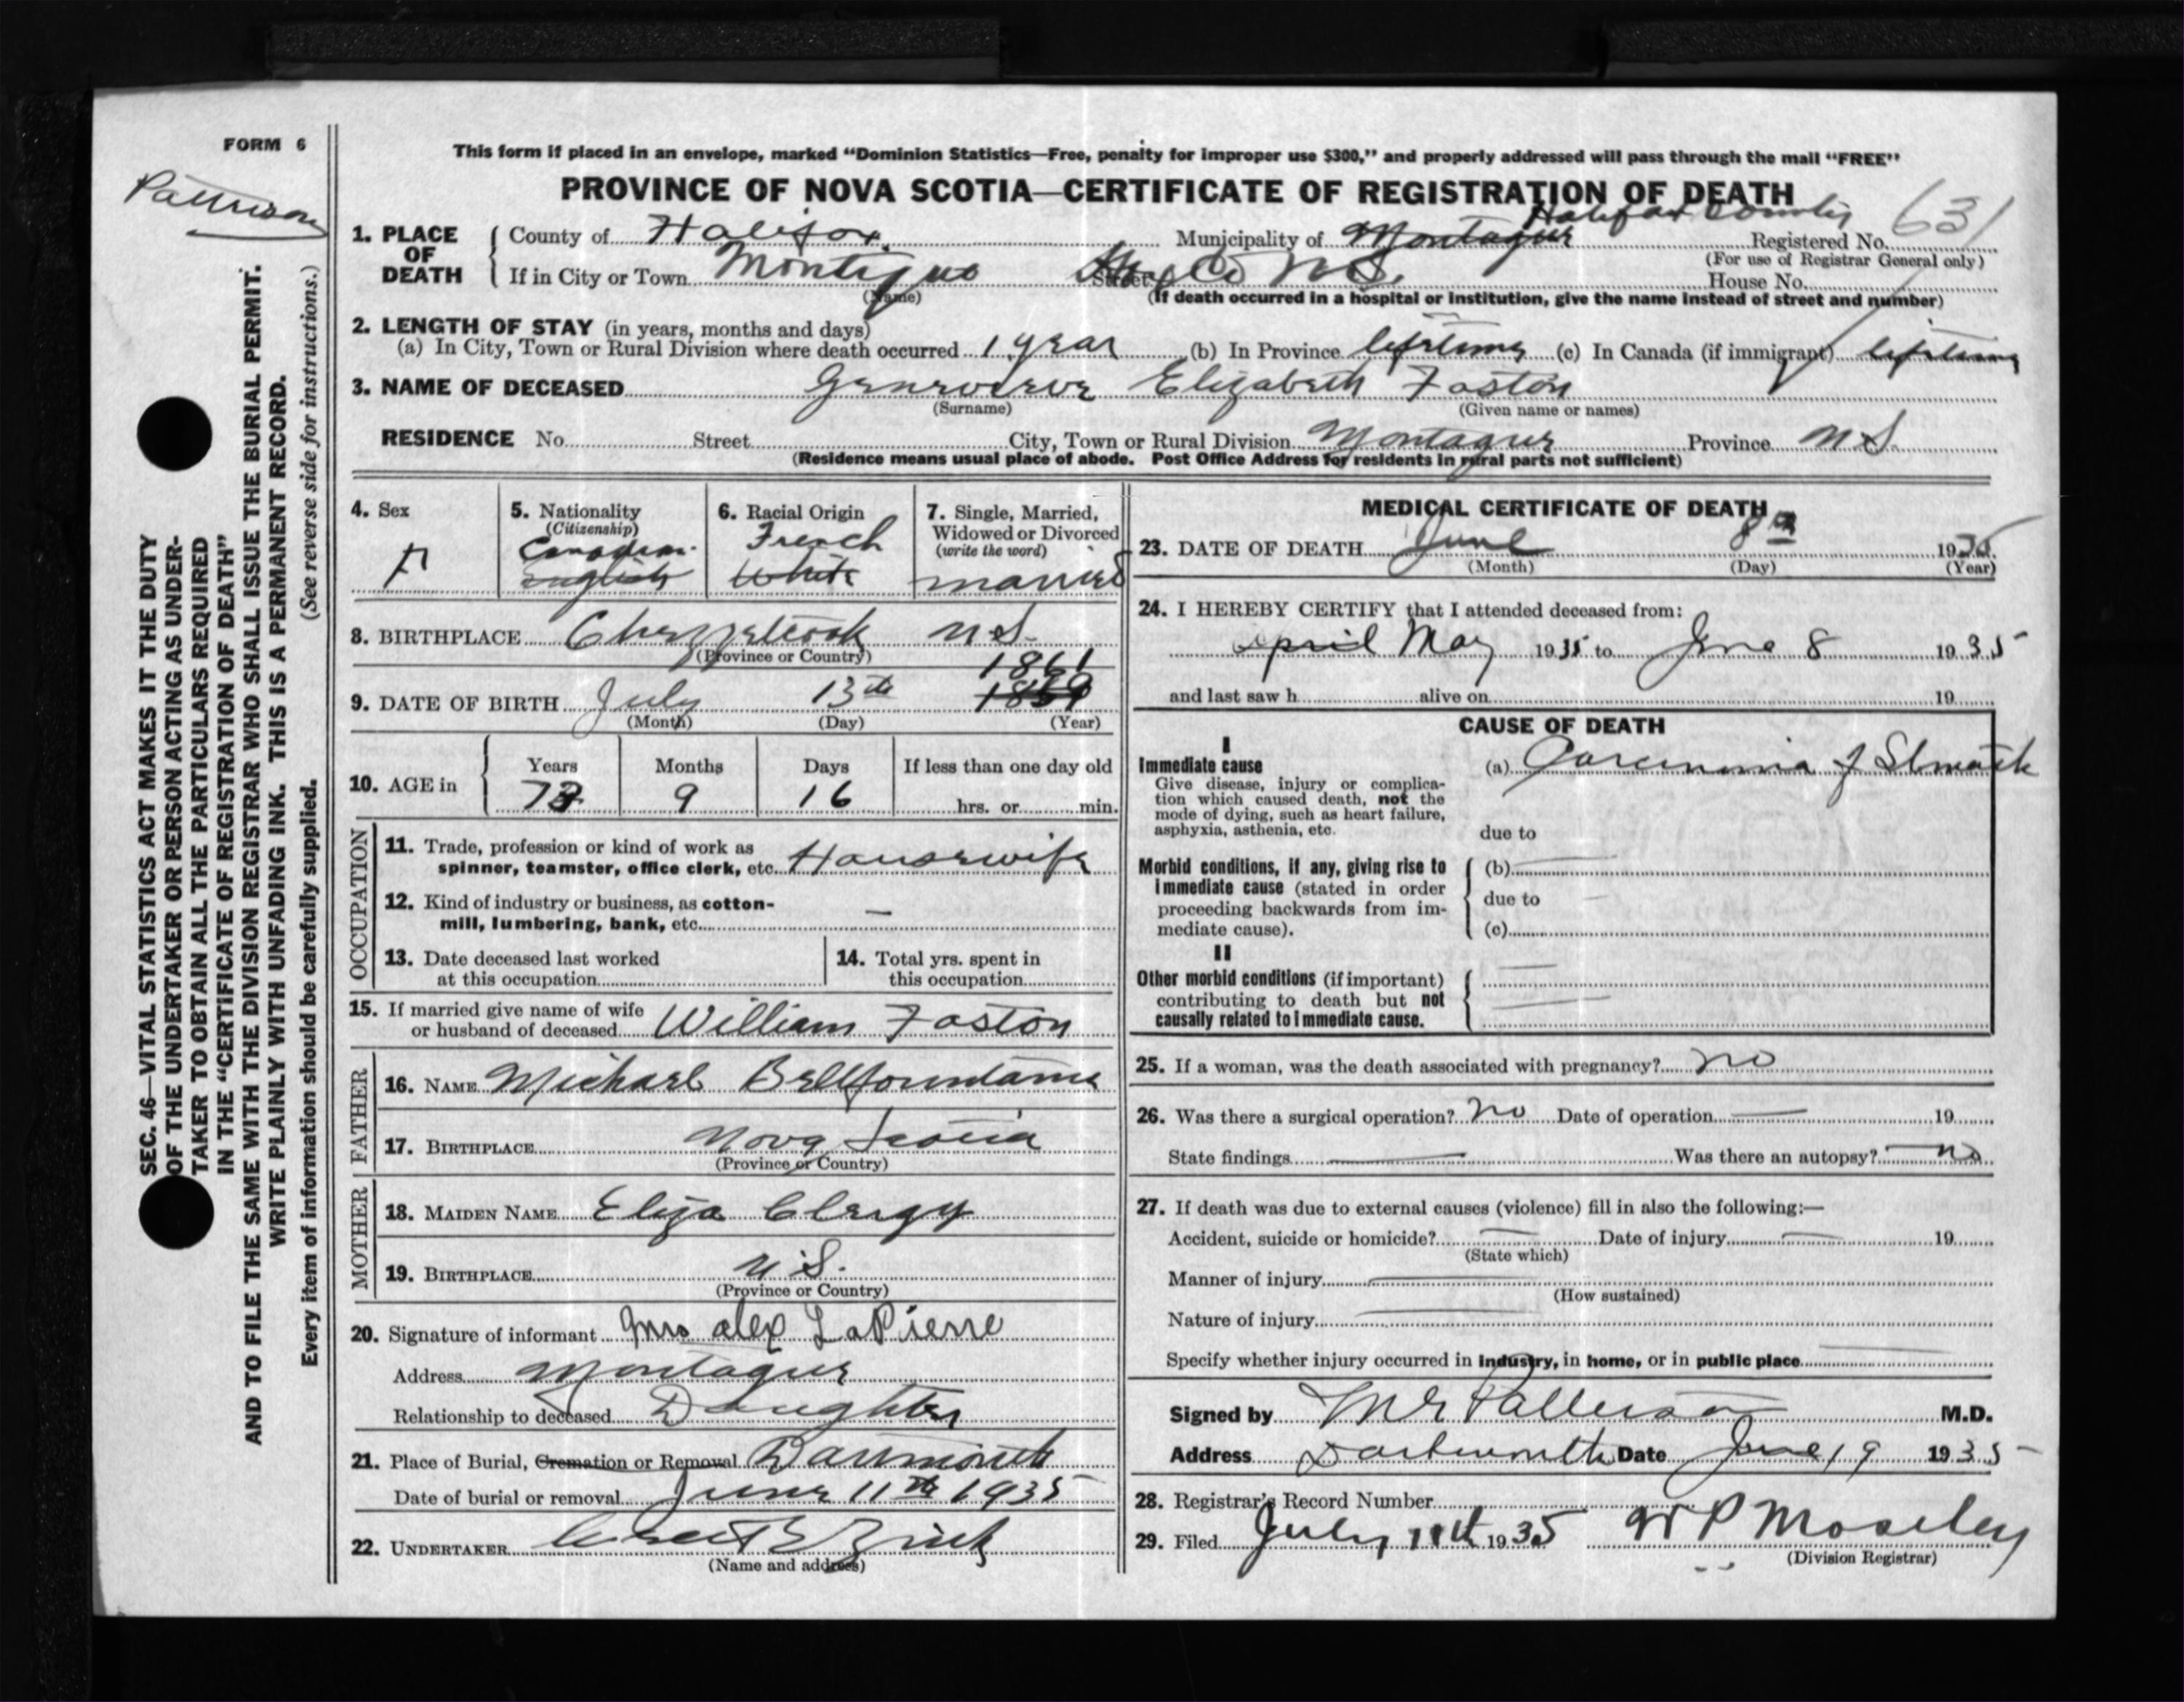 FORM 6
Pattison
This form if placed in an envelope, marked "Dominion Statistics—Free, penalty for improper use $300," and properly addressed will pass through the mail "FREE"
PROVINCE OF NOVA SCOTIA—CERTIFICATE OF REGISTRATION OF DEATH
1. PLACE OF DEATH
County of Halifax. Municipality of Montague Halifax County Registered No. 631
(For use of Registrar General only)
If in City or Town Montigue Street Hfx Co N.S. House No.
(Name) (If death occurred in a hospital or institution, give the name instead of street and number)
2. LENGTH OF STAY (in years, months and days)
(a) In City, Town or Rural Division where death occurred 1 year (b) In Province lifetime (c) In Canada (if immigrant) lifetime
3. NAME OF DECEASED Genevieve Elizabeth Faston
(Surname) (Given name or names)
RESIDENCE No. Street City, Town or Rural Division Montague Province N.S.
(Residence means usual place of abode. Post Office Address for residents in rural parts not sufficient)
4. Sex
F
5. Nationality
(Citizenship)
Canadian
English
6. Racial Origin
French
White
7. Single, Married, Widowed or Divorced
(write the word)
married
8. BIRTHPLACE Chezzetcook N.S.
(Province or Country)
1861
9. DATE OF BIRTH July 13th 1859
(Month) (Day) (Year)
10. AGE in
Years Months Days If less than one day old
73 9 16 hrs. or min.
OCCUPATION
11. Trade, profession or kind of work as
spinner, teamster, office clerk, etc. Housewife
12. Kind of industry or business, as cotton-
mill, lumbering, bank, etc. —
13. Date deceased last worked
at this occupation
14. Total yrs. spent in
this occupation
15. If married give name of wife
or husband of deceased William Faston
FATHER
16. NAME Michael Bellfountaine
17. BIRTHPLACE Nova Scotia
(Province or Country)
MOTHER
18. MAIDEN NAME Eliza Clergy
19. BIRTHPLACE N.S.
(Province or Country)
20. Signature of informant Mrs alex LaPierre
Address Montague
Relationship to deceased Daughter
21. Place of Burial, Cremation or Removal Dartmouth
Date of burial or removal June 11th 1935
22. UNDERTAKER Zink
(Name and address)
MEDICAL CERTIFICATE OF DEATH
23. DATE OF DEATH June 8th 1935
(Month) (Day) (Year)
24. I HEREBY CERTIFY that I attended deceased from:
April May 1935 to June 8 1935
and last saw h alive on 19
CAUSE OF DEATH
I
Immediate cause
Give disease, injury or complica-
tion which caused death, not the
mode of dying, such as heart failure,
asphyxia, asthenia, etc.
(a) Carcinoma of Stomach
due to
Morbid conditions, if any, giving rise to
immediate cause (stated in order
proceeding backwards from im-
mediate cause).
(b)
due to
(c)
II
Other morbid conditions (if important)
contributing to death but not
causally related to immediate cause.
25. If a woman, was the death associated with pregnancy? no
26. Was there a surgical operation? no Date of operation — 19
State findings — Was there an autopsy? no
27. If death was due to external causes (violence) fill in also the following:—
Accident, suicide or homicide? — Date of injury — 19
(State which)
Manner of injury
(How sustained)
Nature of injury
Specify whether injury occurred in industry, in home, or in public place
Signed by M G Patterson M.D.
Address Dartmouth Date June 19 1935
28. Registrar's Record Number
29. Filed July 11th 1935 W P Moseley
(Division Registrar)
SEC. 46—VITAL STATISTICS ACT MAKES IT THE DUTY
OF THE UNDERTAKER OR PERSON ACTING AS UNDER-
TAKER TO OBTAIN ALL THE PARTICULARS REQUIRED
IN THE "CERTIFICATE OF REGISTRATION OF DEATH"
AND TO FILE THE SAME WITH THE DIVISION REGISTRAR WHO SHALL ISSUE THE BURIAL PERMIT.
WRITE PLAINLY WITH UNFADING INK. THIS IS A PERMANENT RECORD.
Every item of information should be carefully supplied. (See reverse side for instructions.)